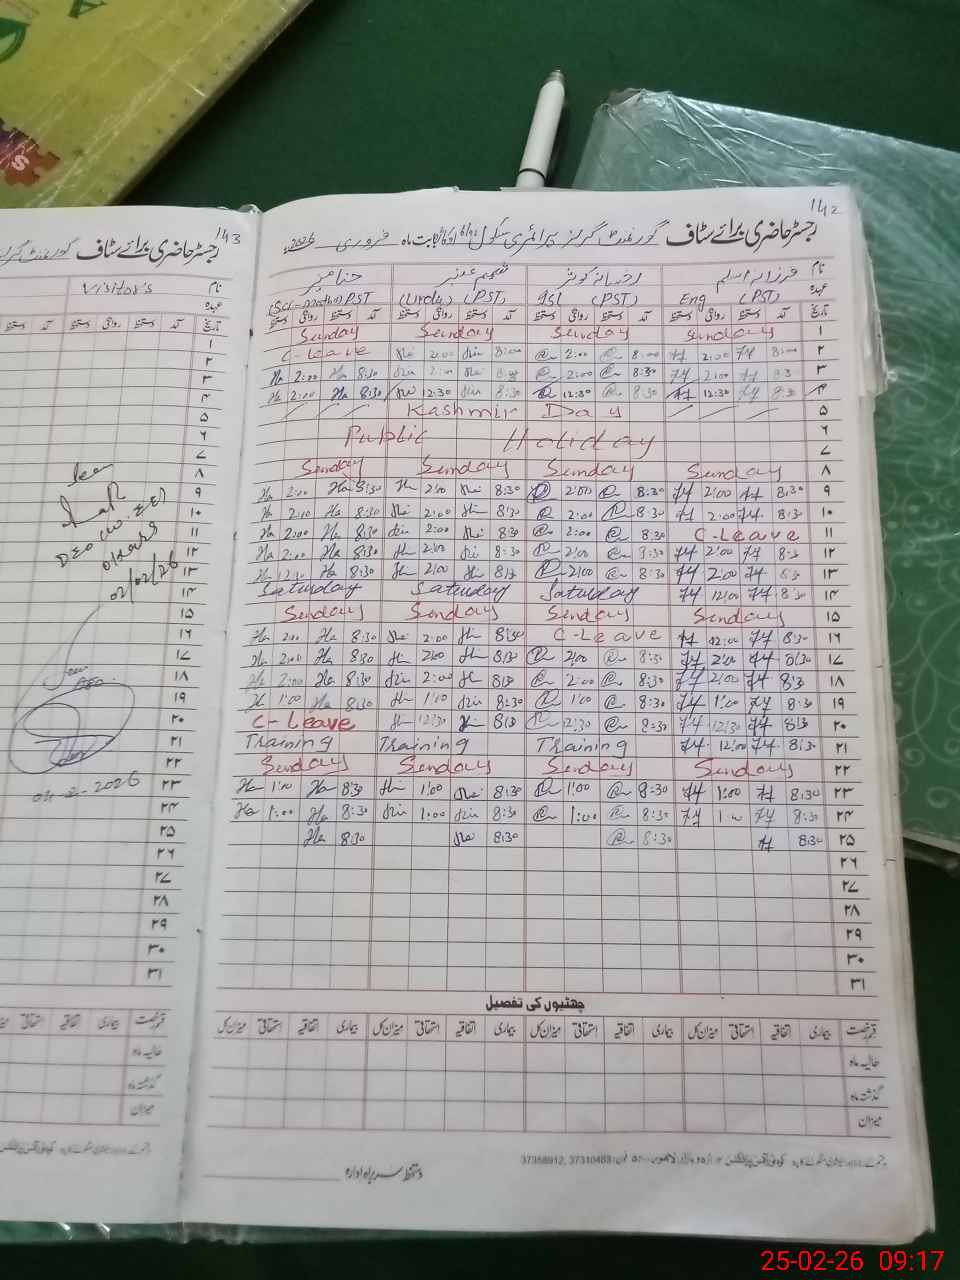 ۱۴۲
رجسٹر حاضری برائے سٹاف گورنمنٹ گرلز پرائمری سکول بابت ماہ فروری 2026
نام فرزانہ اسلم رخسانہ کوثر شمیم عنبر
عہدہ Eng (PST) Isl (PST) (Urdu) (PST) (Sci-math) PST
تاریخ آمد دستخط روانگی دستخط آمد دستخط روانگی دستخط آمد دستخط روانگی دستخط آمد دستخط روانگی دستخط
۱ Sunday Sunday Sunday Sunday
۲ 8:00 2:00 8:00 2:00 8:00 2:00 C-Leave
۳ 8:30 2:00 8:30 2:00 8:30 2:00 8:30 2:00
۴ 8:30 12:30 8:30 12:30 8:30 12:30 8:30 2:00
۵ Kashmir Day
۶ Public Holiday
۷
۸ Sunday Sunday Sunday Sunday
۹ 8:30 2:00 8:30 2:00 8:30 2:00 8:30 2:00
۱۰ 8:30 2:00 8:30 2:00 8:30 2:00 8:30 2:00
۱۱ C-Leave 8:30 2:00 8:30 2:00 8:30 2:00
۱۲ 8:30 2:00 8:30 2:00 8:30 2:00 8:30 2:00
۱۳ 8:30 2:00 8:30 2:00 8:30 2:00 8:30 12:30
۱۴ 8:30 12:00 Saturday Saturday Saturday
۱۵ Sunday Sunday Sunday Sunday
۱۶ 8:30 12:00 C-Leave 8:30 2:00 8:30 2:00
۱۷ 8:30 2:00 8:30 2:00 8:30 2:00 8:30 2:00
۱۸ 8:30 2:00 8:30 2:00 8:30 2:00 8:30 2:00
۱۹ 8:30 1:00 8:30 1:00 8:30 1:00 8:30 1:00
۲۰ 8:30 12:30 8:30 12:30 8:30 12:30 C-Leave
۲۱ 8:30 12:00 Training Training Training
۲۲ Sunday Sunday Sunday Sunday
۲۳ 8:30 1:00 8:30 1:00 8:30 1:00 8:30 1:00
۲۴ 8:30 1:00 8:30 1:00 8:30 1:00 8:30 1:00
۲۵ 8:30 8:30 8:30 8:30
۲۶
۲۷
۲۸
۲۹
۳۰
۳۱
چھٹیوں کی تفصیل
قسم رخصت بیماری اتفاقیہ استحقاقی میزان کل بیماری اتفاقیہ استحقاقی میزان کل بیماری اتفاقیہ استحقاقی میزان کل بیماری اتفاقیہ استحقاقی میزان کل
حالیہ ماہ
گذشتہ ماہ
میزان
37310483, 37358912
دستخط سربراہ ادارہ
۱۴۳
رجسٹر حاضری برائے سٹاف گورنمنٹ گرلز
نام Visitors
عہدہ
تاریخ آمد دستخط روانگی دستخط آمد دستخط
۱
۲
۳
۴
۵
۶
۷
۸ Seen
۹
۱۰
۱۱
۱۲
۱۳ 02/02/26
۱۴
۱۵
۱۶
۱۷
۱۸
۱۹
۲۰
۲۱
۲۲
۲۳ 04-2-2026
۲۴
۲۵
۲۶
۲۷
۲۸
۲۹
۳۰
۳۱
قسم رخصت بیماری اتفاقیہ استحقاقی میزان کل
حالیہ ماہ
گذشتہ ماہ
میزان
25-02-26 09:17